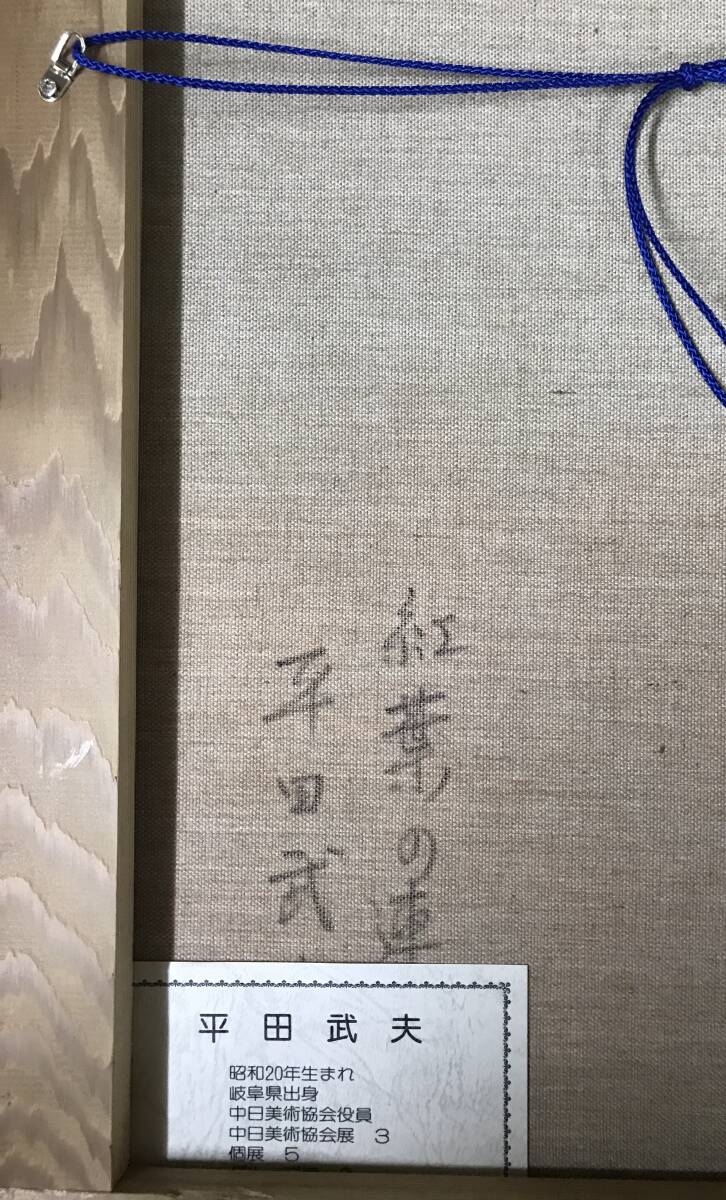 紅葉の連
平田武
平田武夫
昭和20年生まれ
岐阜県出身
中日美術協会役員
中日美術協会展 3
個展 5